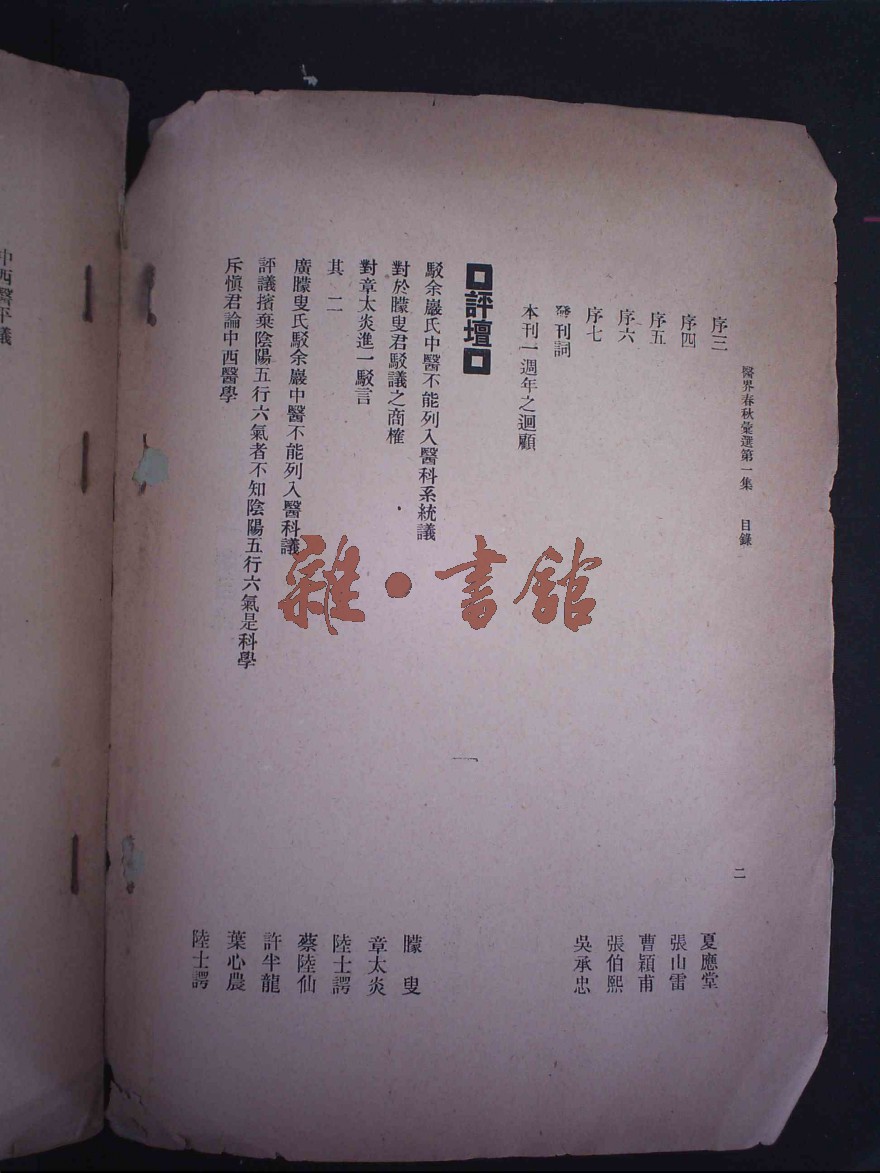 醫界春秋彙選第一集　目錄　二
序三　夏應堂
序四　張山雷
序五　曹穎甫
序六　張伯熙
序七　吳承忠
發刊詞
本刊一週年之迴顧
評壇
駁余巖氏中醫不能列入醫科系統議　朦叟
對於朦叟君駁議之商榷　章太炎
對章太炎進一駁言　陸士諤
其二　蔡陸仙
廣朦叟氏駁余巖中醫不能列入醫科議　許半龍
評議擯棄陰陽五行六氣者不知陰陽五行六氣是科學　葉心農
斥愼君論中西醫學　陸士諤
中西醫平議
雜·書館